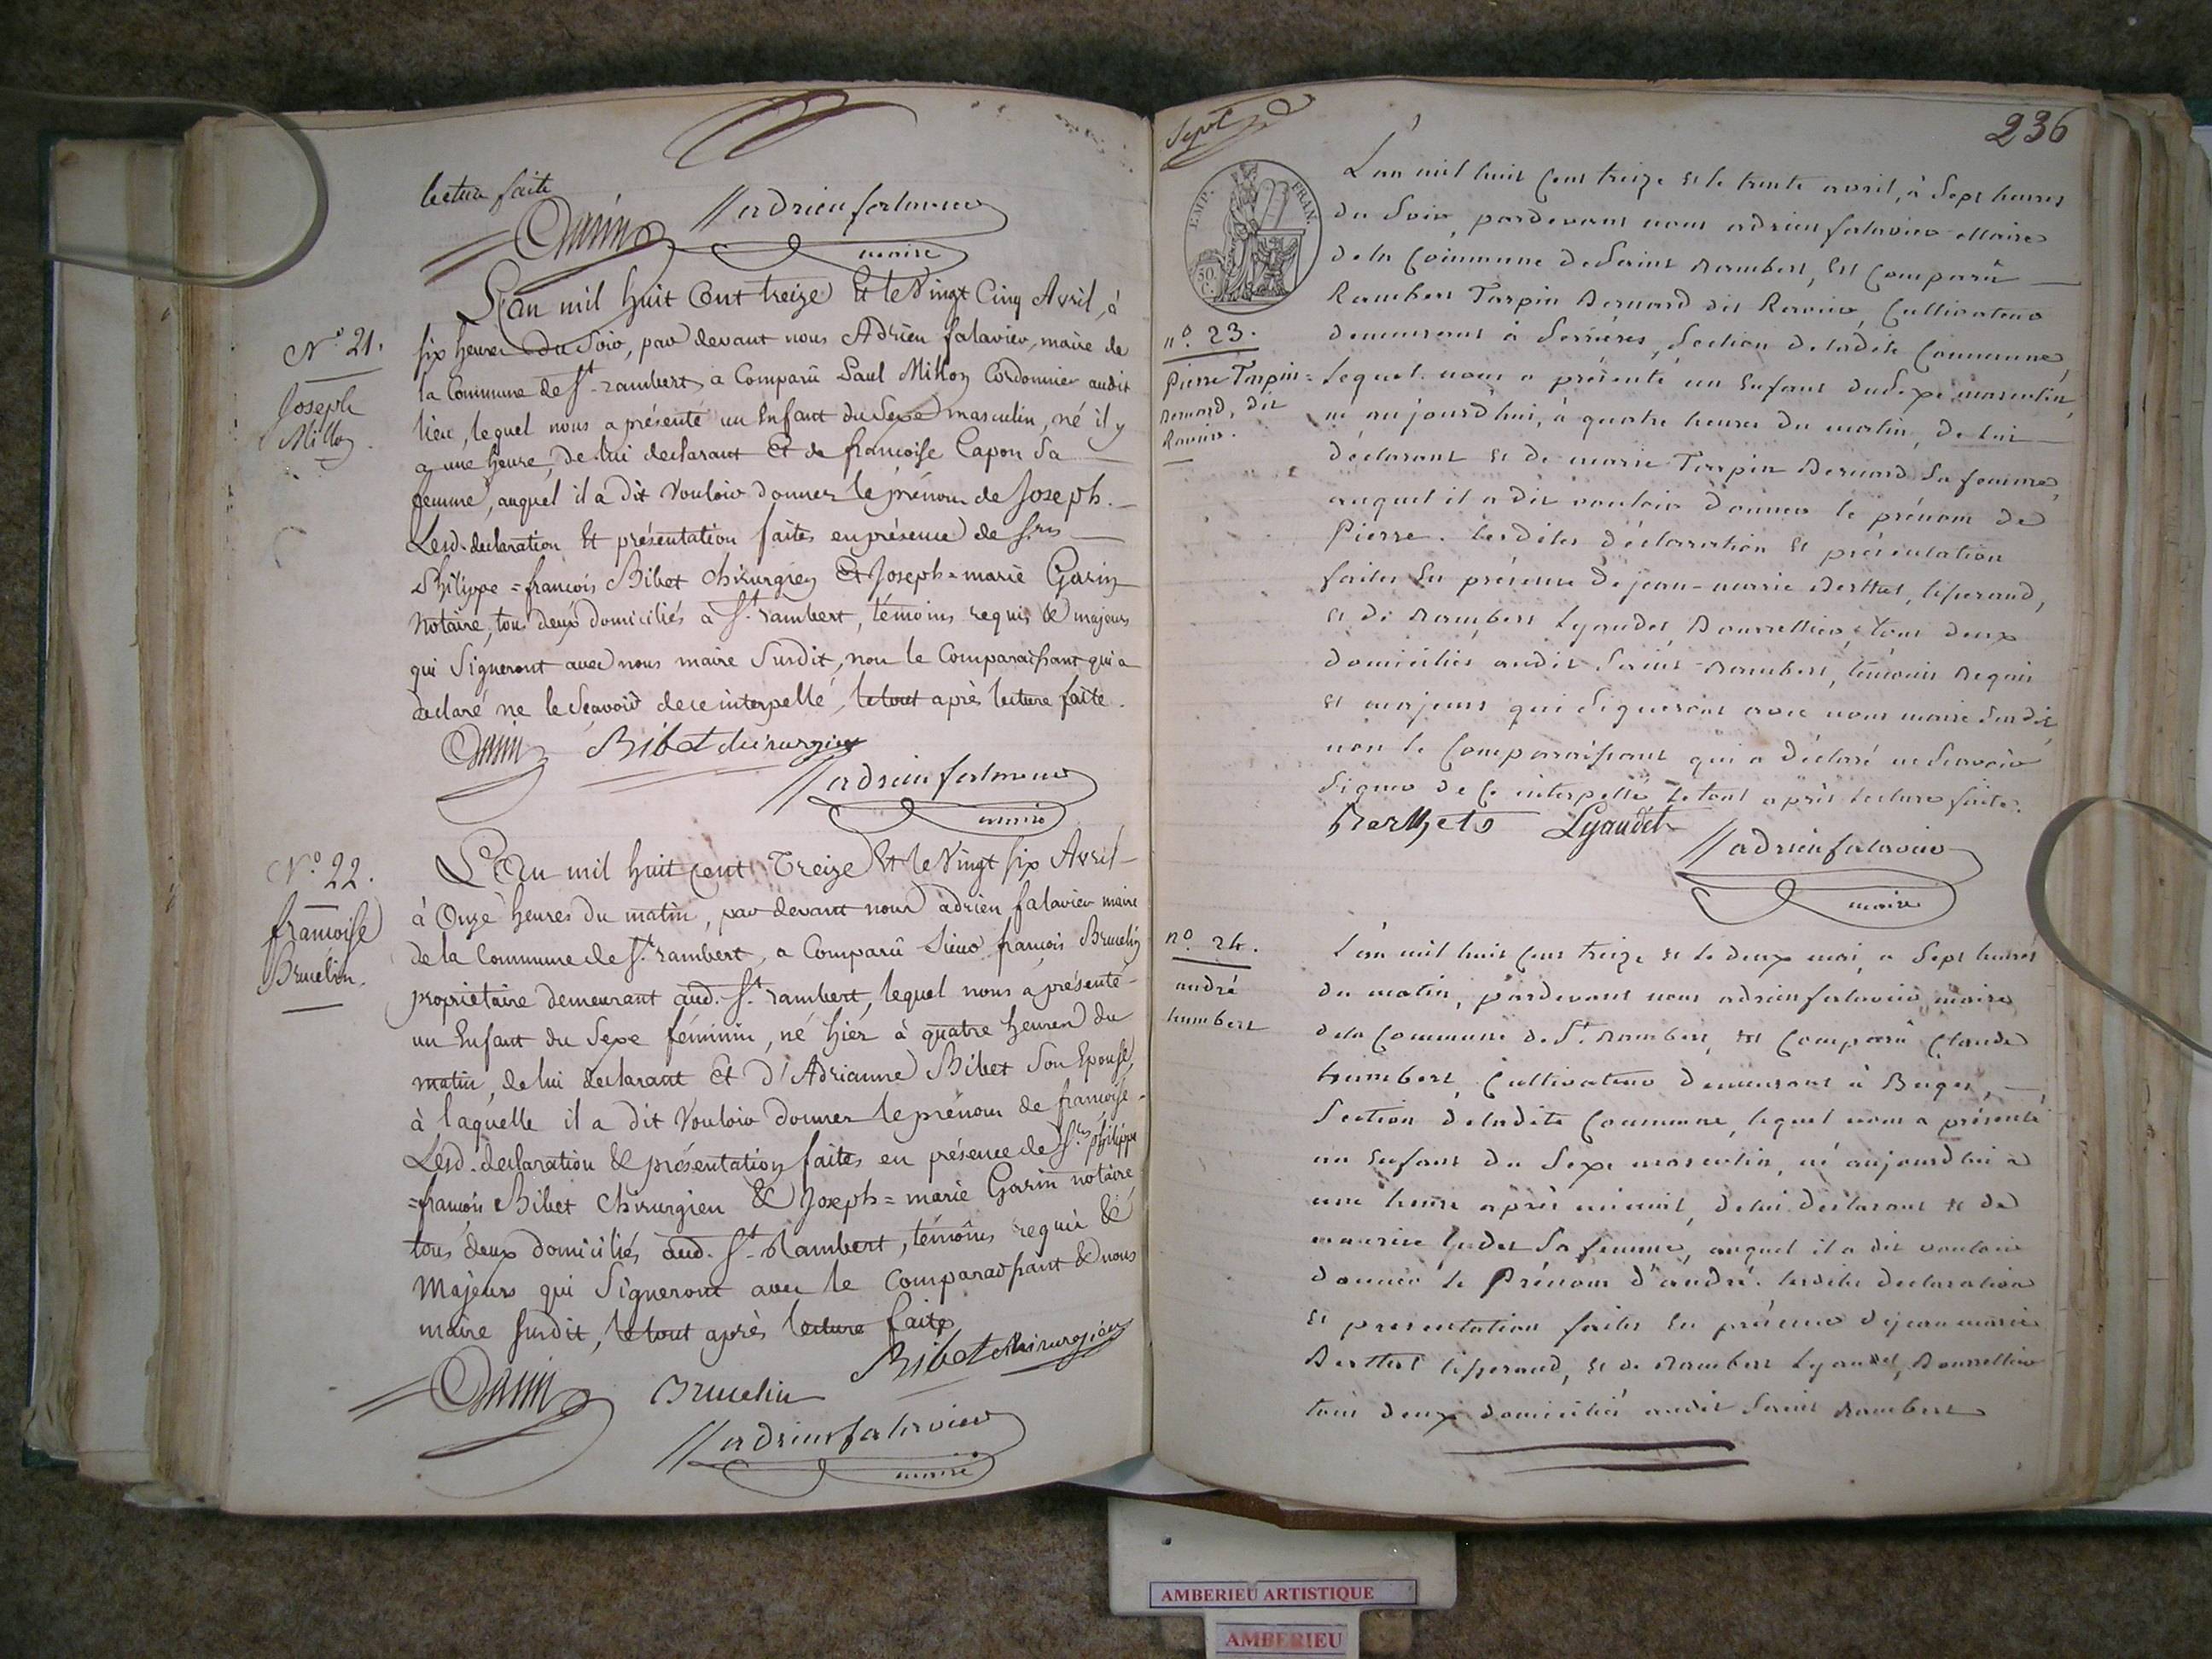 lecture faite
Garin adrien falavier
maire
N.° 21.
Joseph
Milloz.
L'an mil huit Cent treize Et le Vingt Cinq Avril, à
six heures du Soir, par devant nous Adrien falavier, maire de
la Commune de St. rambert, a Comparû Paul Milloz Cordonnier audit
lieu, lequel nous a présenté un Enfant du Sexe masculin, né il y
a une heure, de lui declarant Et de francoise Capon Sa
femme, auquel il a dit Vouloir donner le prénom de Joseph.
Lesd. declaration Et présentation faites en présence de Srs
Philippe = françois Bibet chirurgien Et Joseph = marie Garin
Notaire, tous deux domiciliés à St. rambert, témoins requis & majeurs
qui Signeront avec nous maire Susdit, non le Comparaissant qui a
declaré ne le Sçavoir de ce interpellé, le tout après lecture faite.
Garin Bibet chirurgien
adrien falavier
maire
N.° 22.
francoise
Brucelin.
L'An mil huit Cent Treize Et le Vingt six Avril
à Onze heures du matin, par devant nous adrien falavier maire
de la Commune de St. rambert, a Comparû Sieur françois Brucelin
propriétaire demeurant aud. St. rambert, lequel nous a présenté
un Enfant du Sexe féminin, né hier à quatre heures du
matin, de lui declarant Et d'Adrianne Bibet Son Epouse,
à laquelle il a dit Vouloir donner le prénom de francoise.
Lesd. declaration & présentation faites en présence de Srs philippe
=françois Bibet Chirurgien & Joseph = marie Garin notaire
tous deux domiciliés aud. St. Rambert, témoins requis &
Majeurs qui Signeront avec le Comparaissant & nous
maire susdit, le tout après lecture faite
Garin Brucelin Bibet chirurgien
adrien falavier
maire
Sept
236
EMP. FRAN.
50. C.
L'an mil huit Cent treize et le trente avril, à Sept heures
du Soir, pardevant nous adrien falavier Maire
de la Commune de Saint Rambert, Est Comparû
Rambert Tarpin Bernard dit Ravier, Cultivateur
demeurant à Serrières, Section de ladite Commune,
n.° 23.
Pierre Tarpin=
Bernard, dit
Ravier.
lequel nous a présenté un Enfant du Sexe masculin,
né aujourd'hui, à quatre heures du matin, de lui
déclarant et de marie Tarpin Bernard Sa femme,
auquel il a dit vouloir donner le prénom de
Pierre. lesdites déclaration et présentation
faites En présence de jean-marie Berthet, tisserand,
et de Rambert Lyaudet, Bourrellier, tous deux
domiciliés audit Saint-Rambert, témoins Requis
et majeurs qui Signeront avec nous maire Susdit,
non le Comparaissant qui a déclaré ne Scavoir
Signer de Ce interpellé le tout après lecture faite.
Berthet Lyaudet
adrien falavier
maire
n.° 24.
andré
humbert
L'an mil huit Cent treize et le deux mai, a Sept heures
du matin, pardevant nous adrien falavier, maire
de la Commune de St. Rambert, Est Comparû Claude
humbert, Cultivateur demeurant à Buges,
Section de ladite Commune, lequel nous a présenté
un Enfant du Sexe masculin, né aujourdhui a
une heure après minuit, de lui déclarant et de
Sa femme, auquel il a dit vouloir
donner le Prénom d'andré. lesdites declaration
et presentation faites En présence de jean marie
Berthet tisserand, et de Rambert Lyaudet, Bourrellier
tous deux domiciliés audit Saint Rambert
AMBERIEU ARTISTIQUE
AMBERIEU